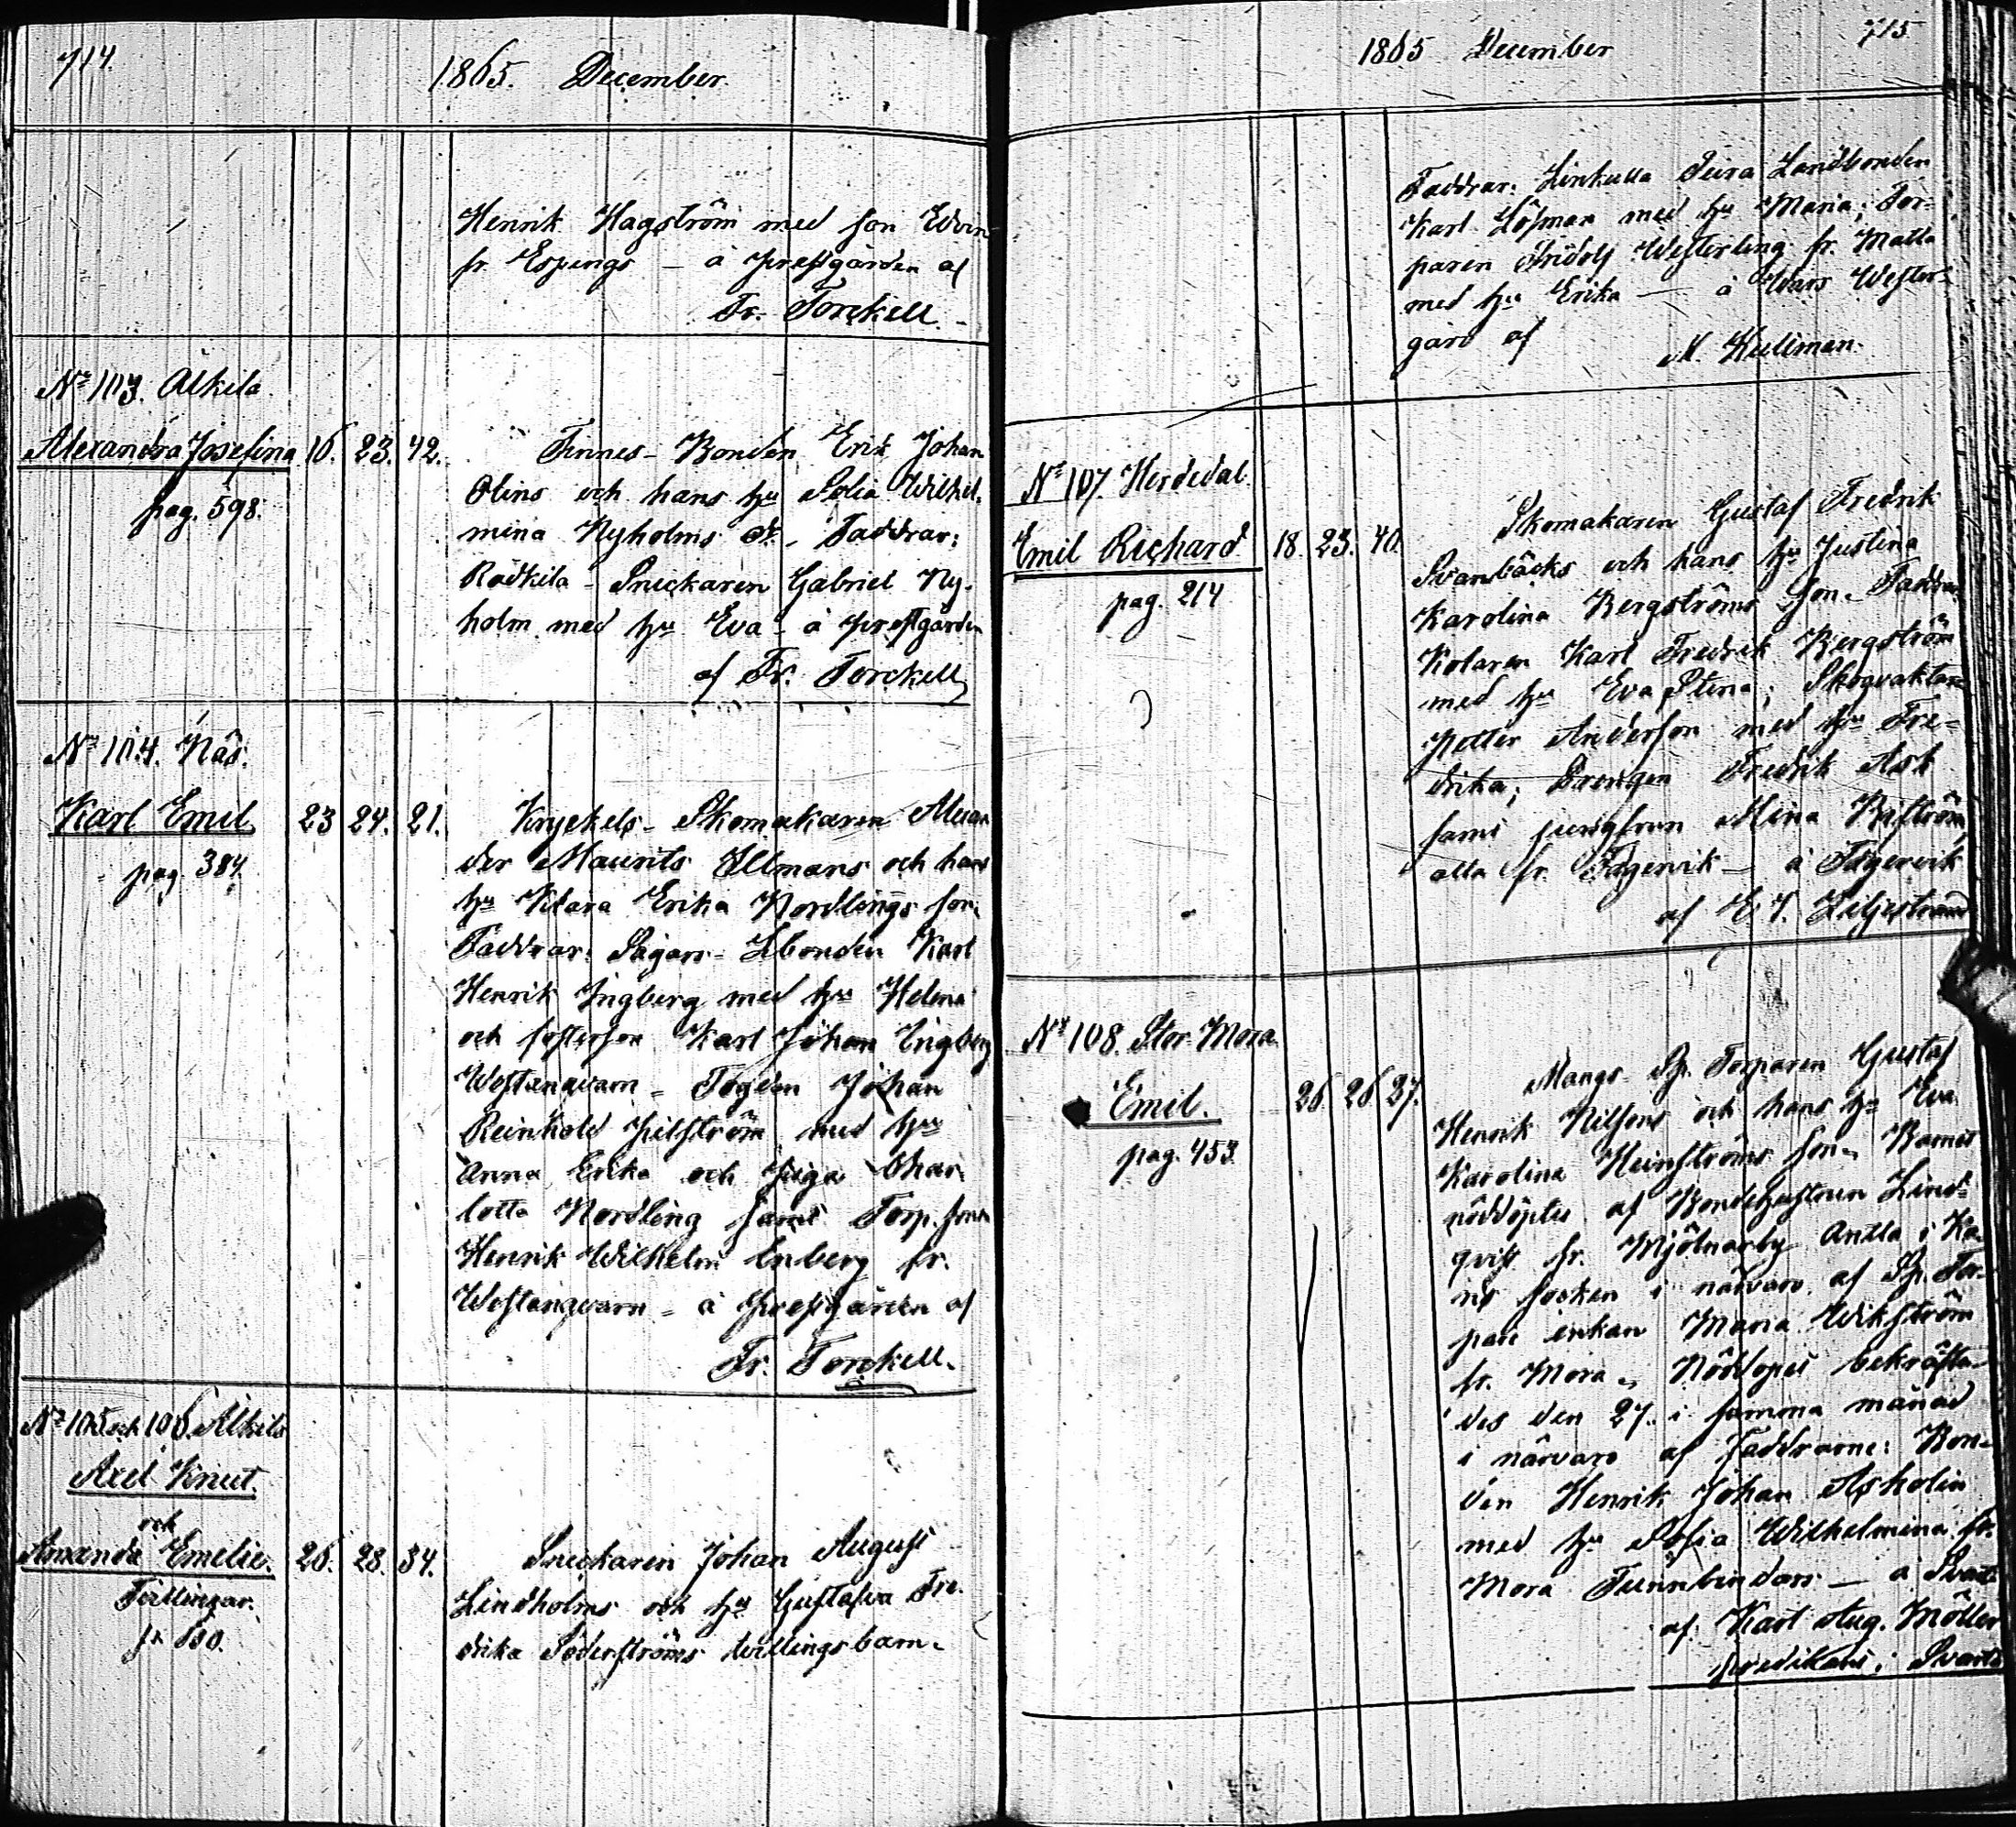 714.
1865. December.
Henrik Hagström med son Edvin
fr. Espings – å prestgården af
Fr. Torckell.
No 103. Alkila
Alexandra Josefina 16. 23. 42.
pag. 598.
Finnes – Bonden Erik Johan
Olins och hans hu Sofia Wilhel-
mina Nyholms dr. Faddrar:
Rådkila – Snickaren Gabriel Ny-
holm med hu Eva – å prestgården
af Fr. Torckell
No 104. Näs.
Karl Emil 23 24. 21.
pag. 384.
Kryckels – Skomakaren Alexan
der Maurits Illmans och hans
hu Klara Erika Nordlings son.
Faddrar: Sågars – Lbonden Karl
Henrik Ingberg med hu Helena
och fosterson Karl Johan Engberg
Westanqvarn – Fogden Johan
Reinhold med hu
Anna Erika och piga Char-
lotta Nordling samt Torp. son
Henrik Wilhelm Enberg fr.
Westanqvarn – å prestgården af
Fr. Torckell.
No 105 och 106. Alkila
Axel Knut.
och
Amanda Emelie. 26. 28. 34.
Tvillingar.
Snickaren Johan August
Lindholms och hu Gustafva Fre-
drika Söderströms tvillingsbarn –
715
1865 December
Faddrar: Linkulla Landbonden
Karl Löfman med hu Maria; Tor-
paren Fridolf Westerling fr. Malla
med hu Erika — å Wars Wester-
gård af
Kullman.
No 107. Herdedal.
Emil Richard 18. 23. 40.
pag. 214
Skomakaren Gustaf Fredrik
Svanbäcks och hans hu Justina
Karolina Bergströms son – Faddrar
Kolaren Karl Fredrik Bergström
med hu Eva Stina; Skogvaktaren
Petter Anderson med hu Fre-
drika; Drengen Fredrik Ask
samt jungfrun Mina
alla fr. Fagervik – å Fagervik
af E. J. Liljestrand
No 108. Stor Mora
Emil. 26 26 37.
pag. 453
Mangs – Sp. Torparen Gustaf
Henrik Nilsons och hans hu Eva
Karolina Heinströms son – Barnet
nöddöptes af Bondehustrun Lind-
qvist fr. Mjölnarby Antla i Ka-
ris socken i närvaro af Sp. Tor-
pare enkan Maria Wikström
fr. Mora – Nöddopet bekräfta-
des den 27. i samma månad
i närvaro af Faddrarne: Bon-
den Henrik Johan Asholin
med hu Sofia Wilhelmina fr.
Mora Tunnbindars — å Svartå
af Karl Aug. Möller
predikant i Svartå